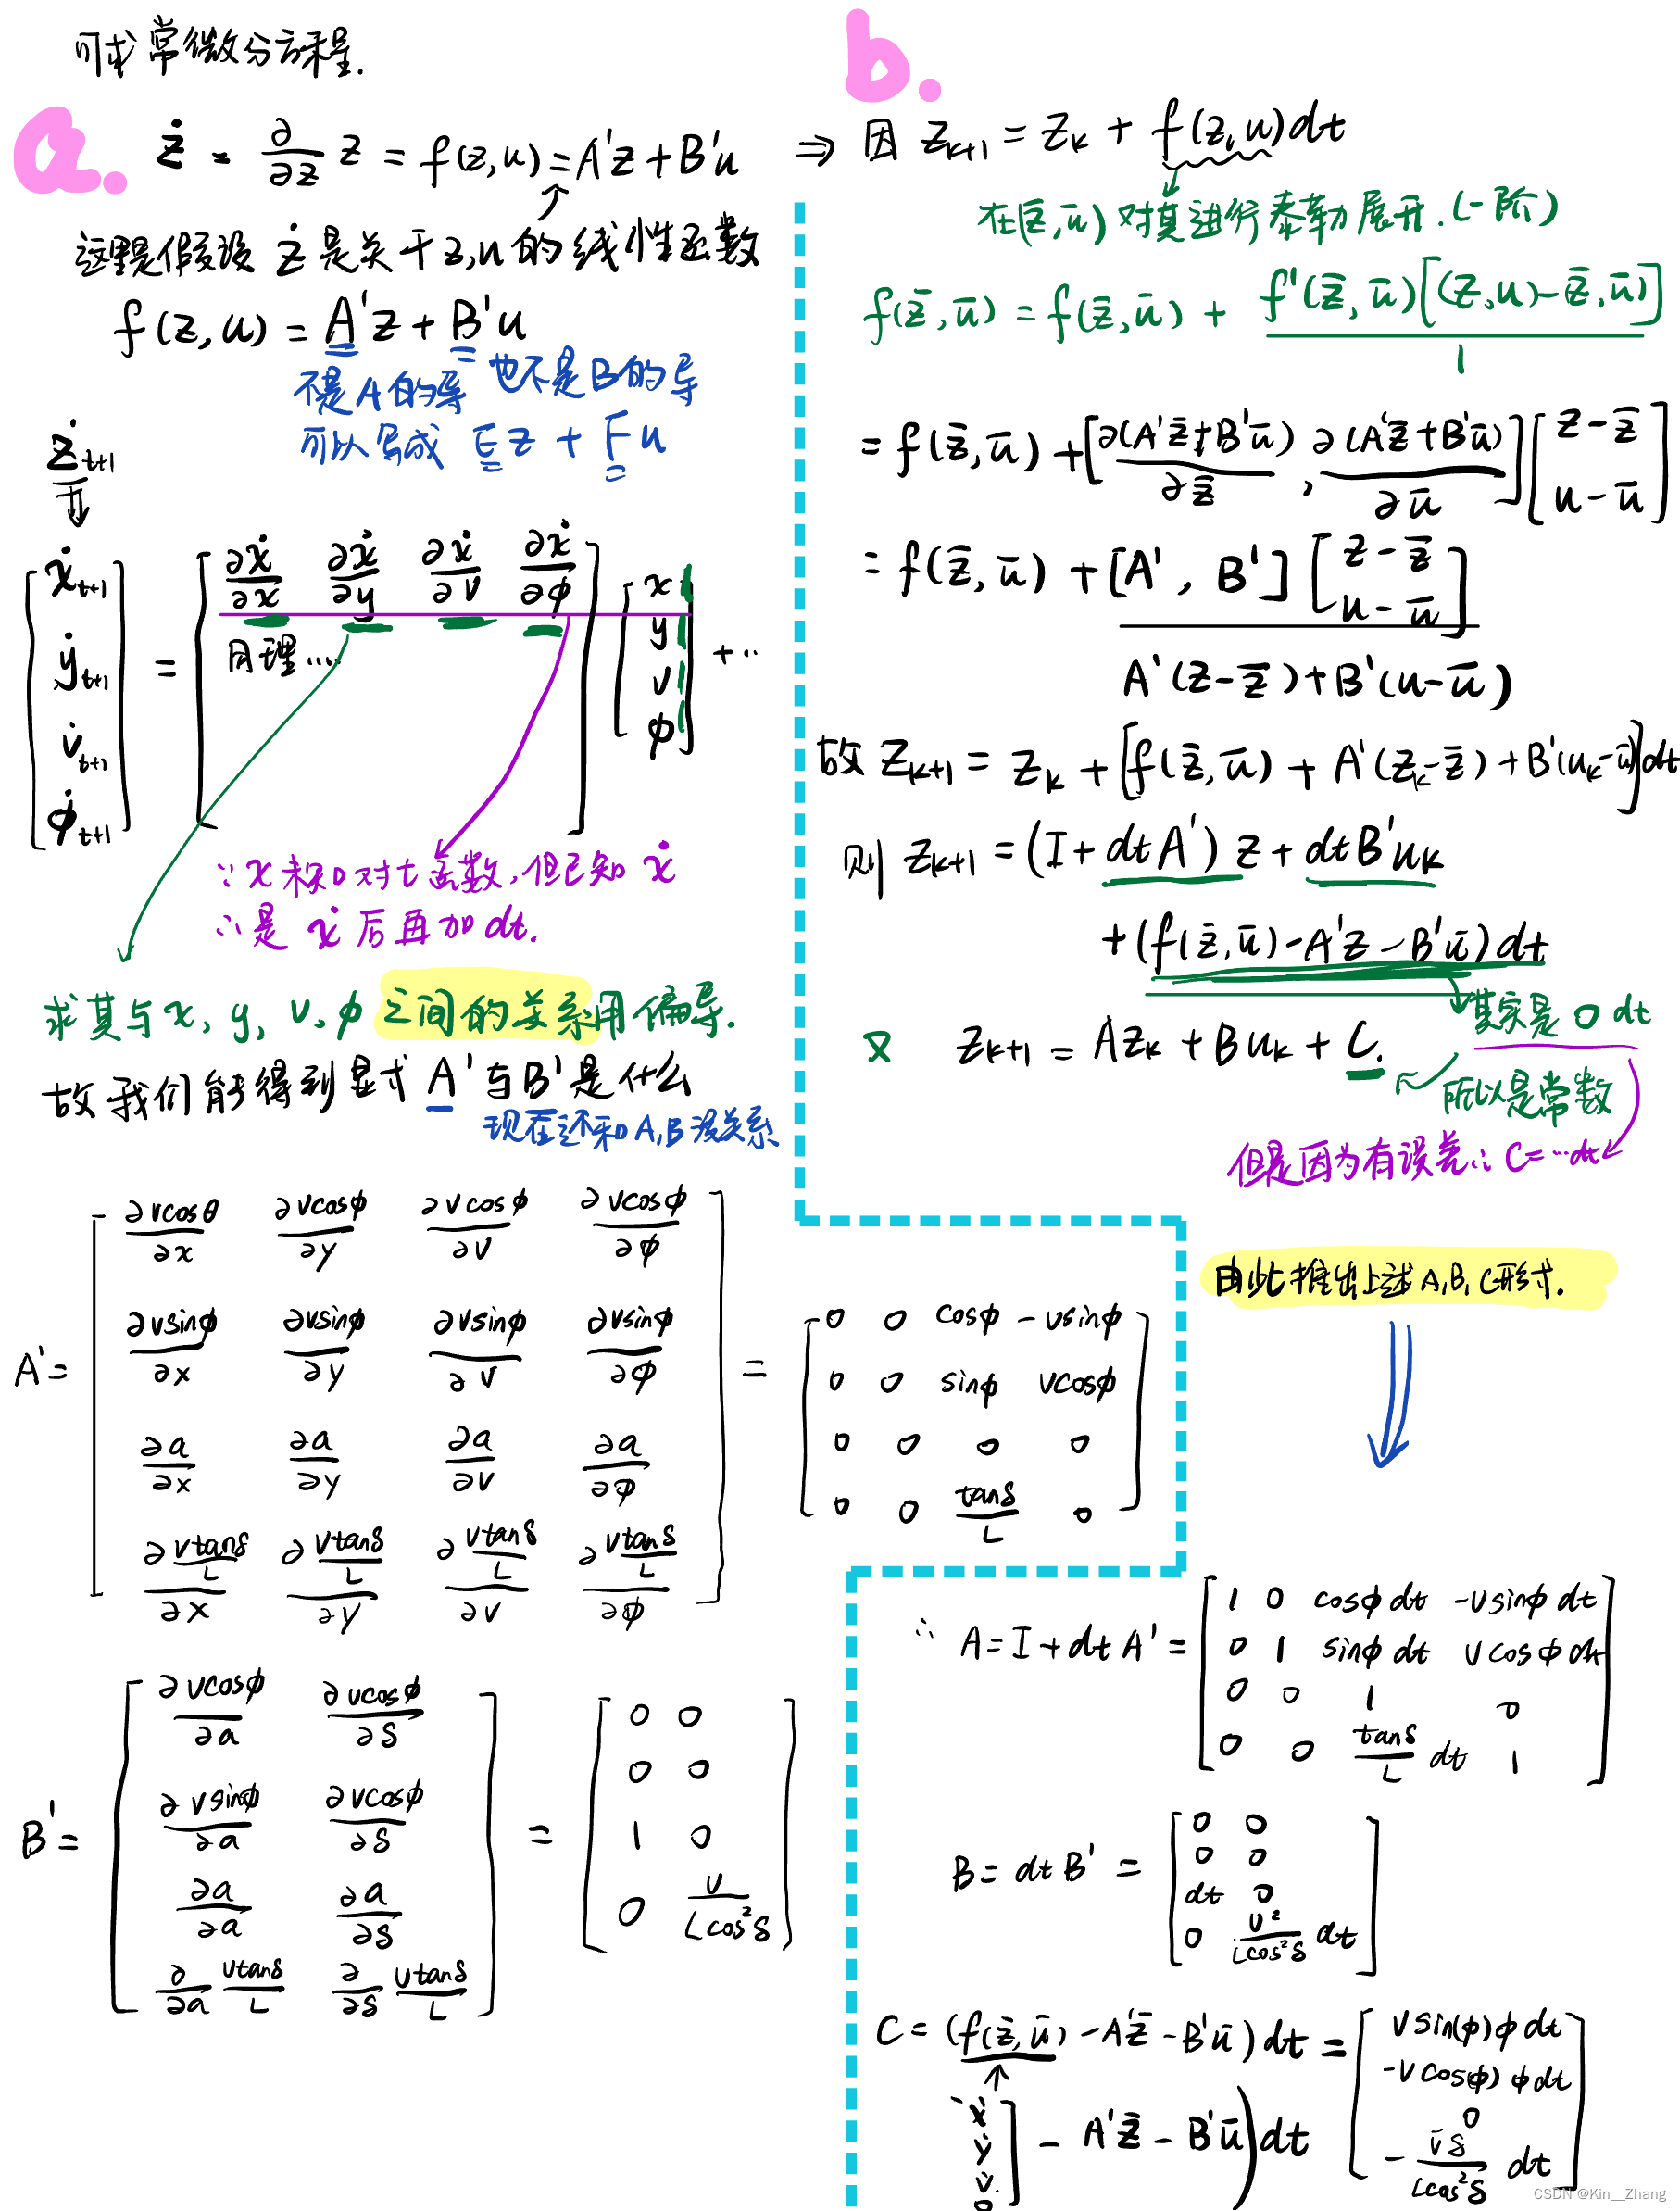 可求常微分方程.
a.
ż = ∂/∂z z = f(z,u) = A'z + B'u
这里是假设 ż 是关于z,u的线性函数
f(z,u) = A'z + B'u
不是A的导 也不是B的导
可以写成 Ez + Fu
ż_{t+1}
[ẋ_{t+1} ẏ_{t+1} v̇_{t+1} φ̇_{t+1}] = [∂ẋ/∂x ∂ẋ/∂y ∂ẋ/∂v ∂ẋ/∂φ 同理...] [x y v φ] + ..
∵ x 未知 对t函数,但已知 ẋ
∴是 ẋ 后再加dt.
求其与x, y, v, φ 之间的关系用偏导.
故我们能得到显式 A' 与B'是什么
现在还和A,B没关系
A' = [∂vcosθ/∂x ∂vcosφ/∂y ∂vcosφ/∂v ∂vcosφ/∂φ
∂vsinφ/∂x ∂vsinφ/∂y ∂vsinφ/∂v ∂vsinφ/∂φ
∂a/∂x ∂a/∂y ∂a/∂v ∂a/∂φ
∂(vtanδ/L)/∂x ∂(vtanδ/L)/∂y ∂(vtanδ/L)/∂v ∂(vtanδ/L)/∂φ]
= [0 0 cosφ -vsinφ
0 0 sinφ vcosφ
0 0 0 0
0 0 tanδ/L 0]
B' = [∂vcosφ/∂a ∂vcosφ/∂δ
∂vsinφ/∂a ∂vcosφ/∂δ
∂a/∂a ∂a/∂δ
∂/∂a vtanδ/L ∂/∂δ vtanδ/L]
= [0 0
0 0
1 0
0 v/(Lcos²δ)]
b.
⇒ 因 z_{k+1} = z_k + f(z,u)dt
在(z̄,ū) 对其进行泰勒展开.(一阶)
f(z̄,ū) = f(z̄,ū) + f'(z̄,ū)[(z,u)-z̄,ū)]/1
= f(z̄,ū) + [∂(A'z̄+B'ū)/∂z̄, ∂(A'z̄+B'ū)/∂ū] [z-z̄ u-ū]
= f(z̄,ū) + [A', B'] [z-z̄ u-ū]
A'(z-z̄)+B'(u-ū)
故 z_{k+1} = z_k + [f(z̄,ū) + A'(z_k-z̄) + B'(u_k-ū)]dt
则 z_{k+1} = (I+dtA')z + dtB'u_k
+ (f(z̄,ū)-A'z-B'ū)dt
其实是 0 dt
又 z_{k+1} = Az_k + Bu_k + C.
所以是常数
但是因为有误差∴ C=...dt
由此推出上述A,B,C形式.
∴ A = I + dtA' = [1 0 cosφ dt -vsinφ dt
0 1 sinφ dt vcosφ dt
0 0 1 0
0 0 tanδ/L dt 1]
B = dtB' = [0 0
0 0
dt 0
0 v²/(Lcos²δ) dt]
C = (f(z̄,ū) - A'z̄ - B'ū)dt = [vsin(φ)φdt
-vcos(φ)φdt
0
-v̄δ/(Lcos²δ) dt]
ẋ ẏ v̇.] - A'z̄ - B'ū)dt
CSDN @Kin__Zhang